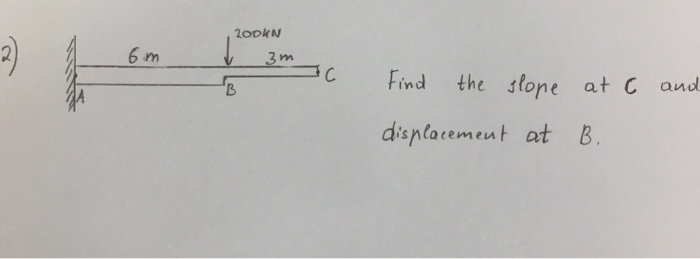 2)
200kN
6m
3m
A
B
C
Find the slope at C and
displacement at B.